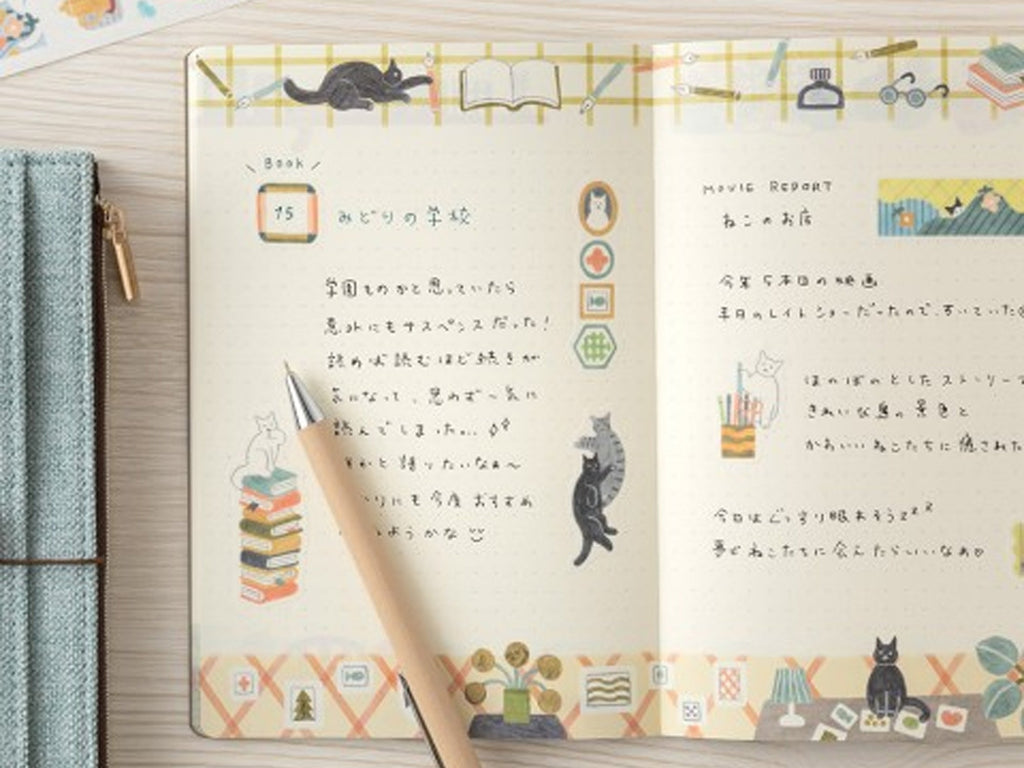 Book
15
みどりの学校
学園ものかと思っていたら
意外にもサスペンスだった!
読めば読むほど続きが
気になって、思わず一気に
読んでしまった…
かと語りたいなぁ〜
りにも今度おすすめ
ようかな
MOVIE REPORT
ねこのお店
今年5本目の映画
平日のレイトショーだったので、すいていた
ほのぼのとしたストーリーで
きれいな島の景色と
かわいいねこたちに癒された
今日はぐっすり眠れそうzzz
夢でねこたちに会えたらいいなぁ